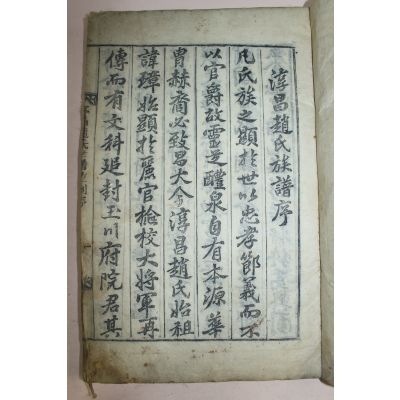 淳昌趙氏族譜序
凡氏族之顯於世以忠孝節義而不
以官爵故靈芝醴泉自有本源華
胄赫裔必致昌大今淳昌趙氏始祖
諱璋始顯於麗官檢校大將軍再
傳而有文科追封玉川府院君其